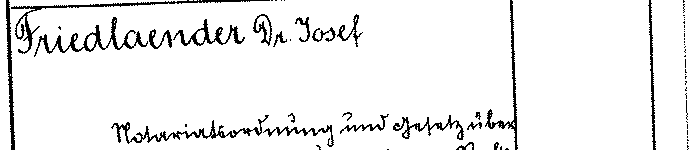 Friedlaender Dr. Josef
Notariatsordnung und Gesetz über